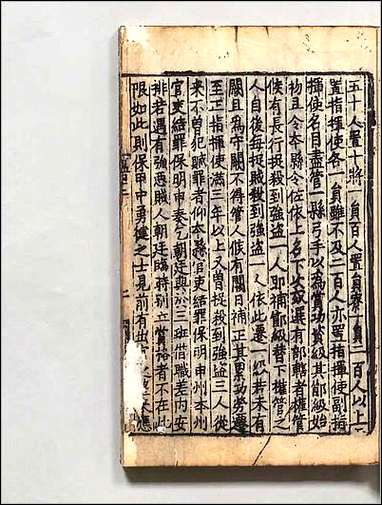 五十人置十將一員百人置員寮一員二百人以上
置指揮使各一員雖不及二百人亦置指揮使副指
揮使名目盡管一縣弓手以為賞功資級其節級始
初且令本縣令佐依上名下次揀選有部轄者權管
候有長行捉殺到強盜一人即補節級替下權管之
人自後每捉賊殺到強盜一人依此遷一級若未有
闕且為守闕不得管人候有闕日補正其累功勞遷
至正指揮使滿三年以上又手殺到強盜三人從
來不曾犯贓罪者仰本縣官吏結罪保明申州本州
官吏結罪保明申奏乞朝廷與於三班借職差內安
排若遇有強惡賊人朝廷臨時別立賞格者不在此
限如此則保甲中勇健之士見前有出